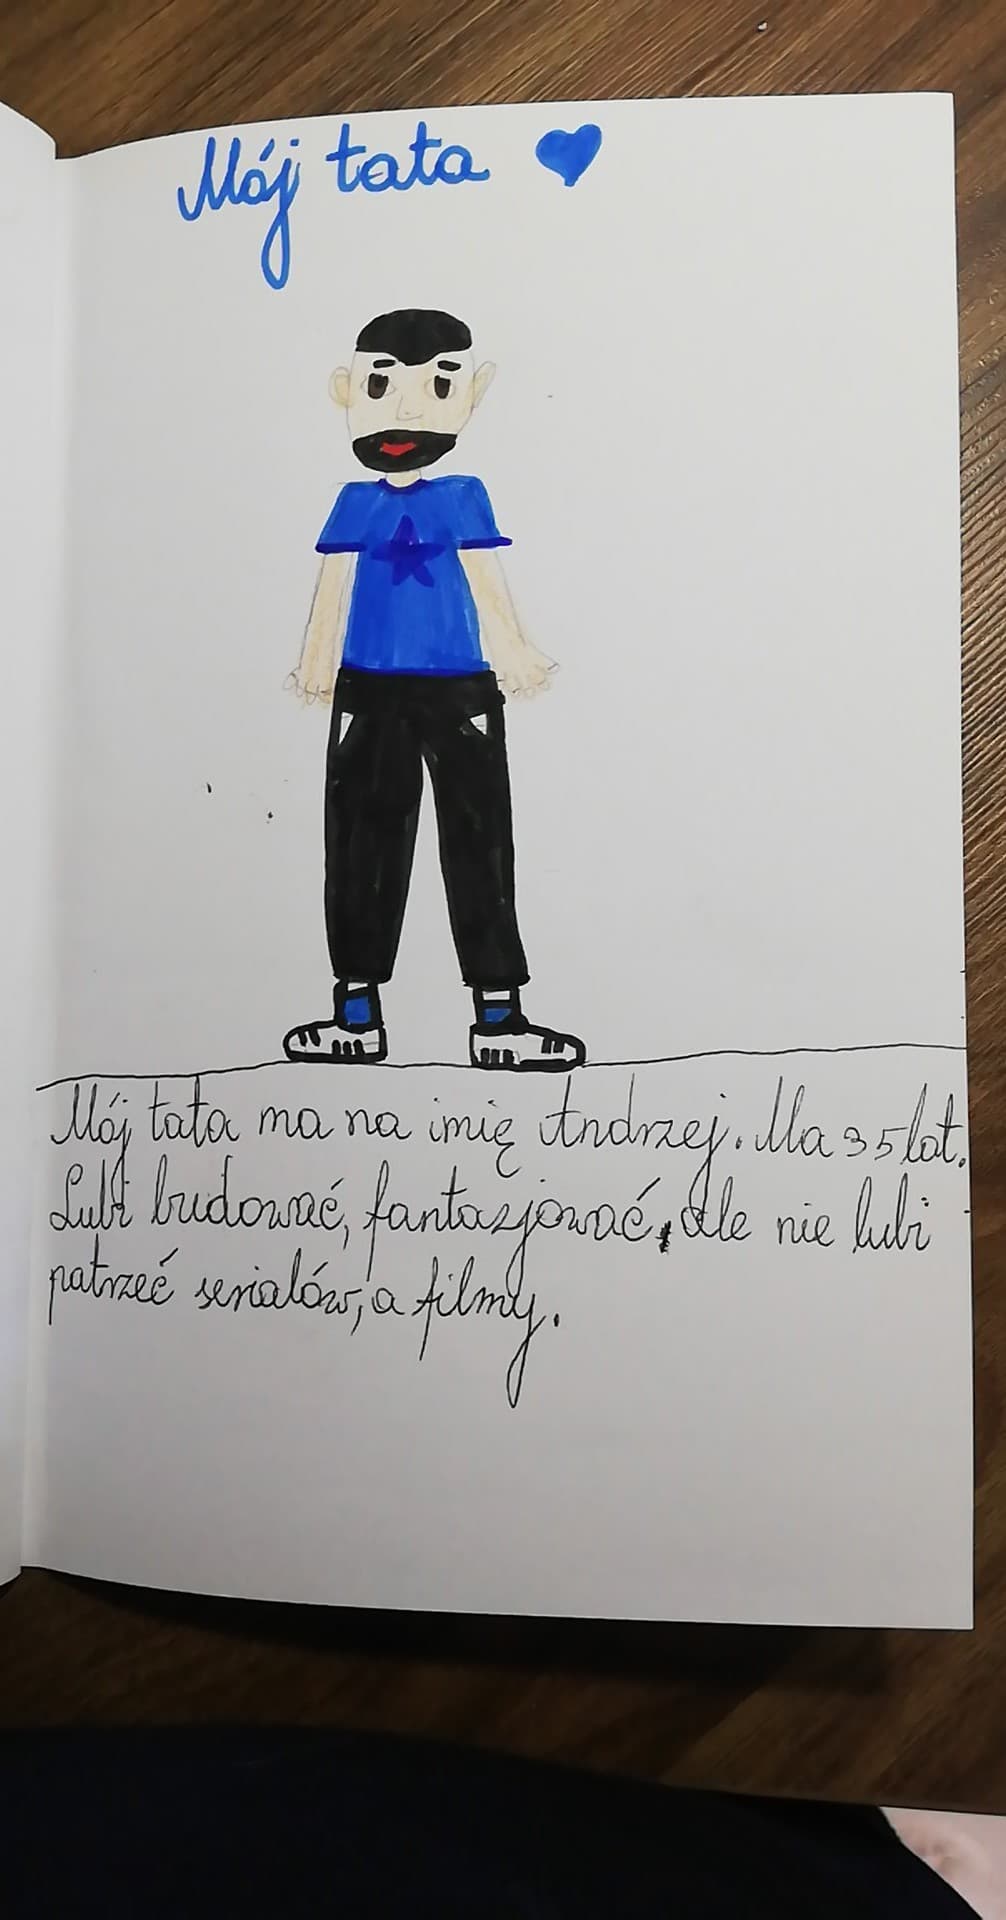 Mój tata
Mój tata ma na imię Andrzej. Ma 35 lat.
Lubi budować, fantazjować, ale nie lubi
patrzeć serialów, a filmy.